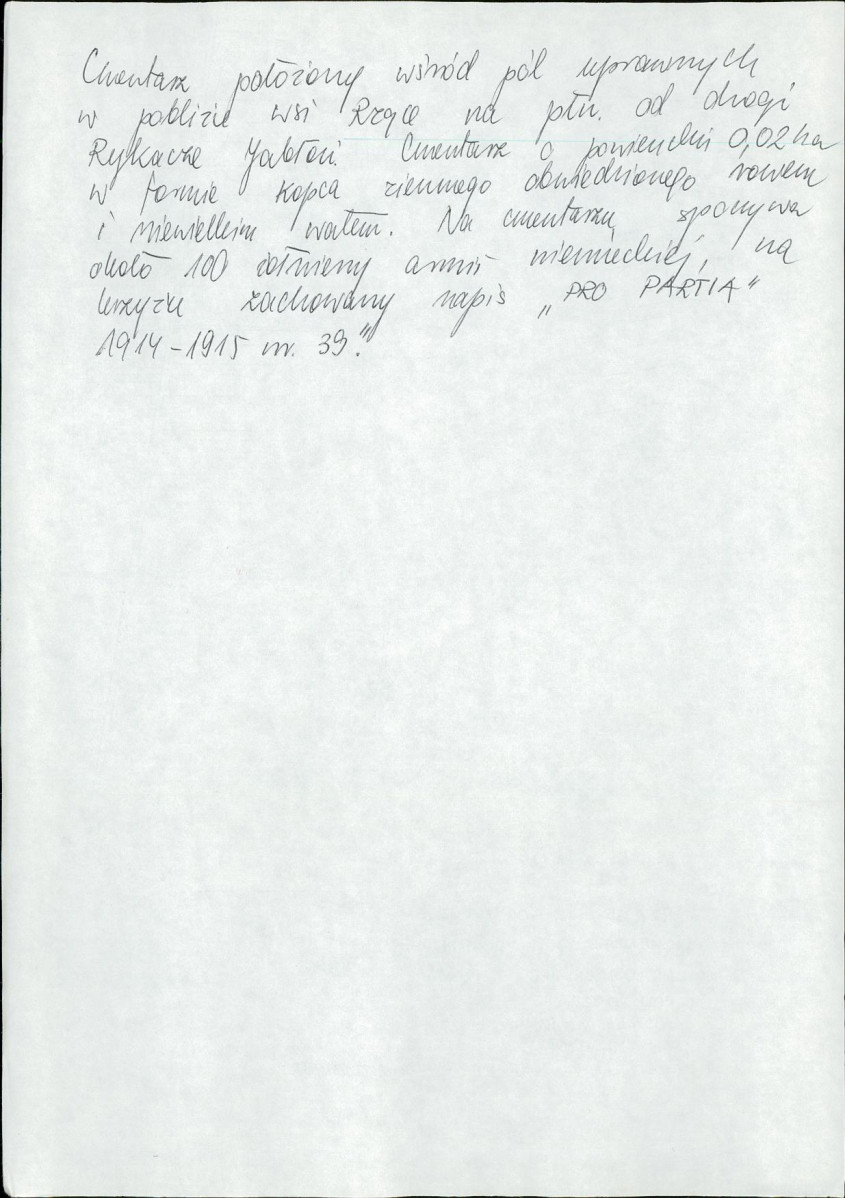 Cmentarz położony wśród pól uprawnych
w pobliżu wsi Rząśce na płn. od drogi
Rykacze Jabłoń. Cmentarz o powierzchni 0,02 ha
w formie kopca ziemnego obwiedzionego rowem
i niewielkim wałem. Na cmentarzu spoczywa
około 100 żołnierzy armii niemieckiej, na
krzyżu zachowany napis „PRO PARTIA"
1914-1915 nr. 39."